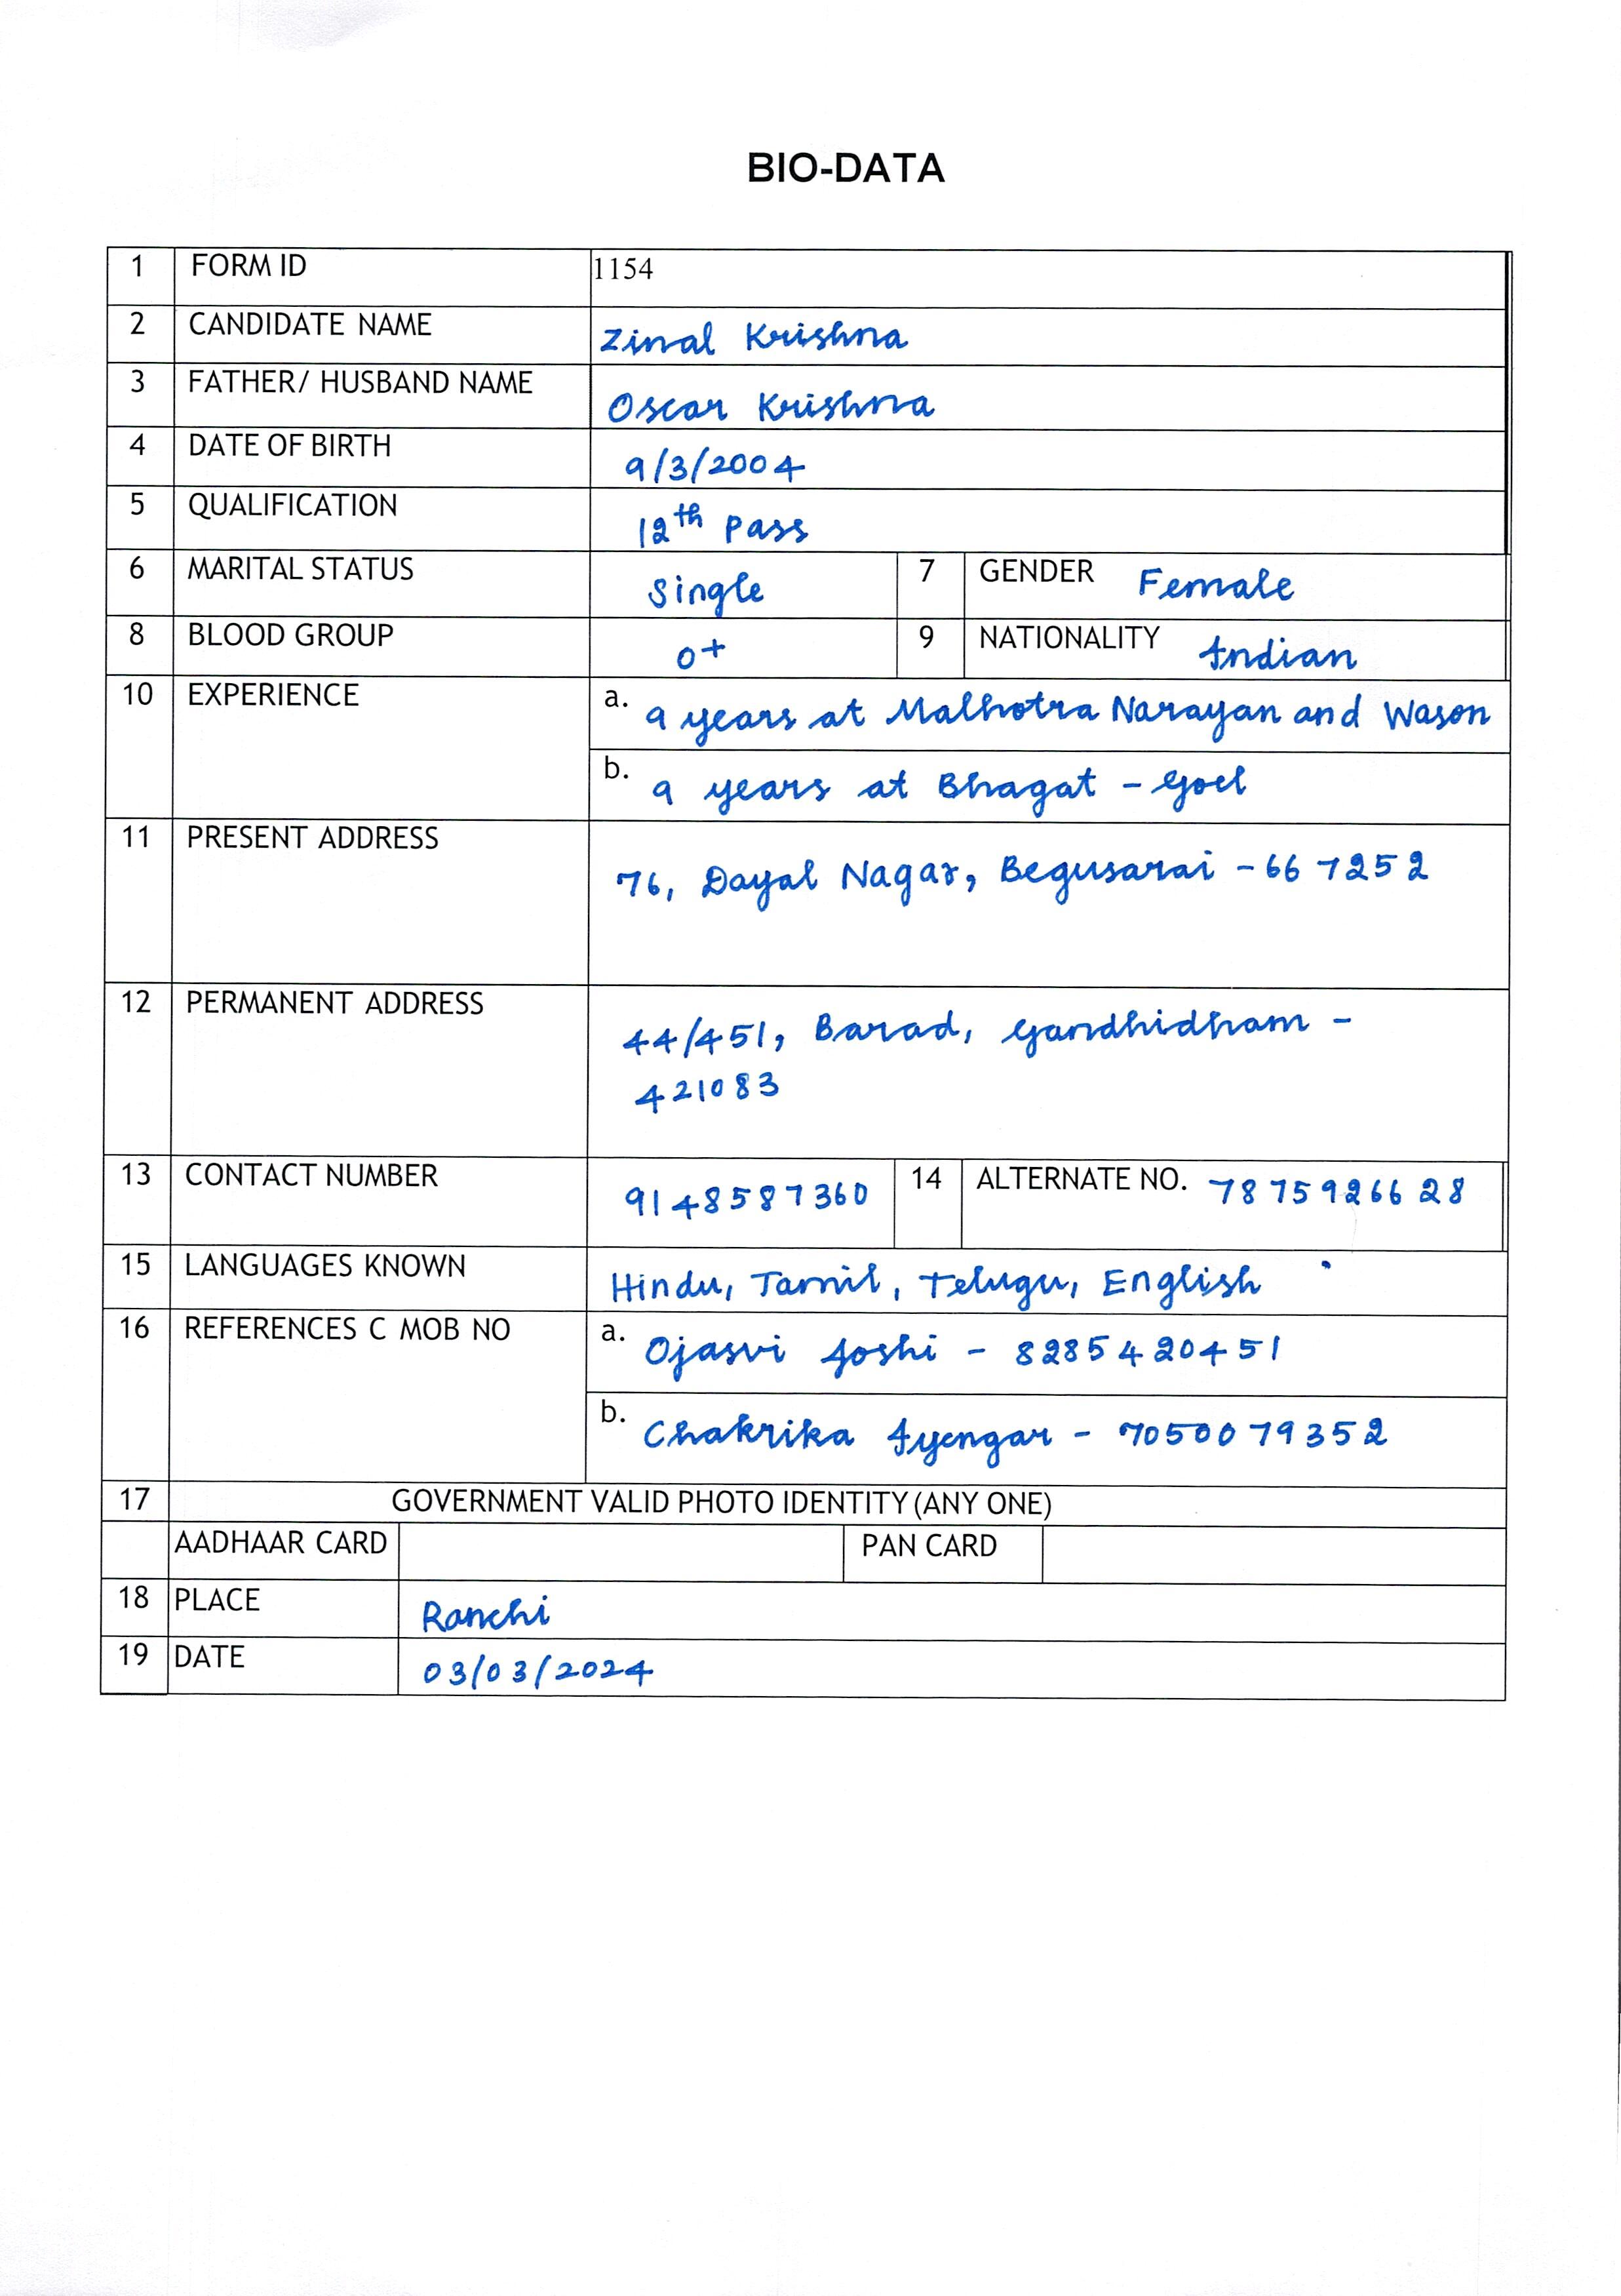 BIO-DATA
1 FORM ID 1154
2 CANDIDATE NAME Zinal Krishna
3 FATHER/ HUSBAND NAME Oscar Krishna
4 DATE OF BIRTH 9/3/2004
5 QUALIFICATION 12th Pass
6 MARITAL STATUS Single 7 GENDER Female
8 BLOOD GROUP O+ 9 NATIONALITY Indian
10 EXPERIENCE a. 9 years at Malhotra Narayan and Wason
b. 9 years at Bhagat - Goel
11 PRESENT ADDRESS
76, Dayal Nagar, Begusarai - 667252
12 PERMANENT ADDRESS
44/451, Barad, Gandhidham -
421083
13 CONTACT NUMBER 9148587360 14 ALTERNATE NO. 7875926628
15 LANGUAGES KNOWN Hindu, Tamil, Telugu, English
16 REFERENCES C MOB NO a. Ojasvi Joshi - 8285420451
b. Chakrika Iyengar - 7050079352
17 GOVERNMENT VALID PHOTO IDENTITY (ANY ONE)
AADHAAR CARD PAN CARD
18 PLACE Ranchi
19 DATE 03/03/2024